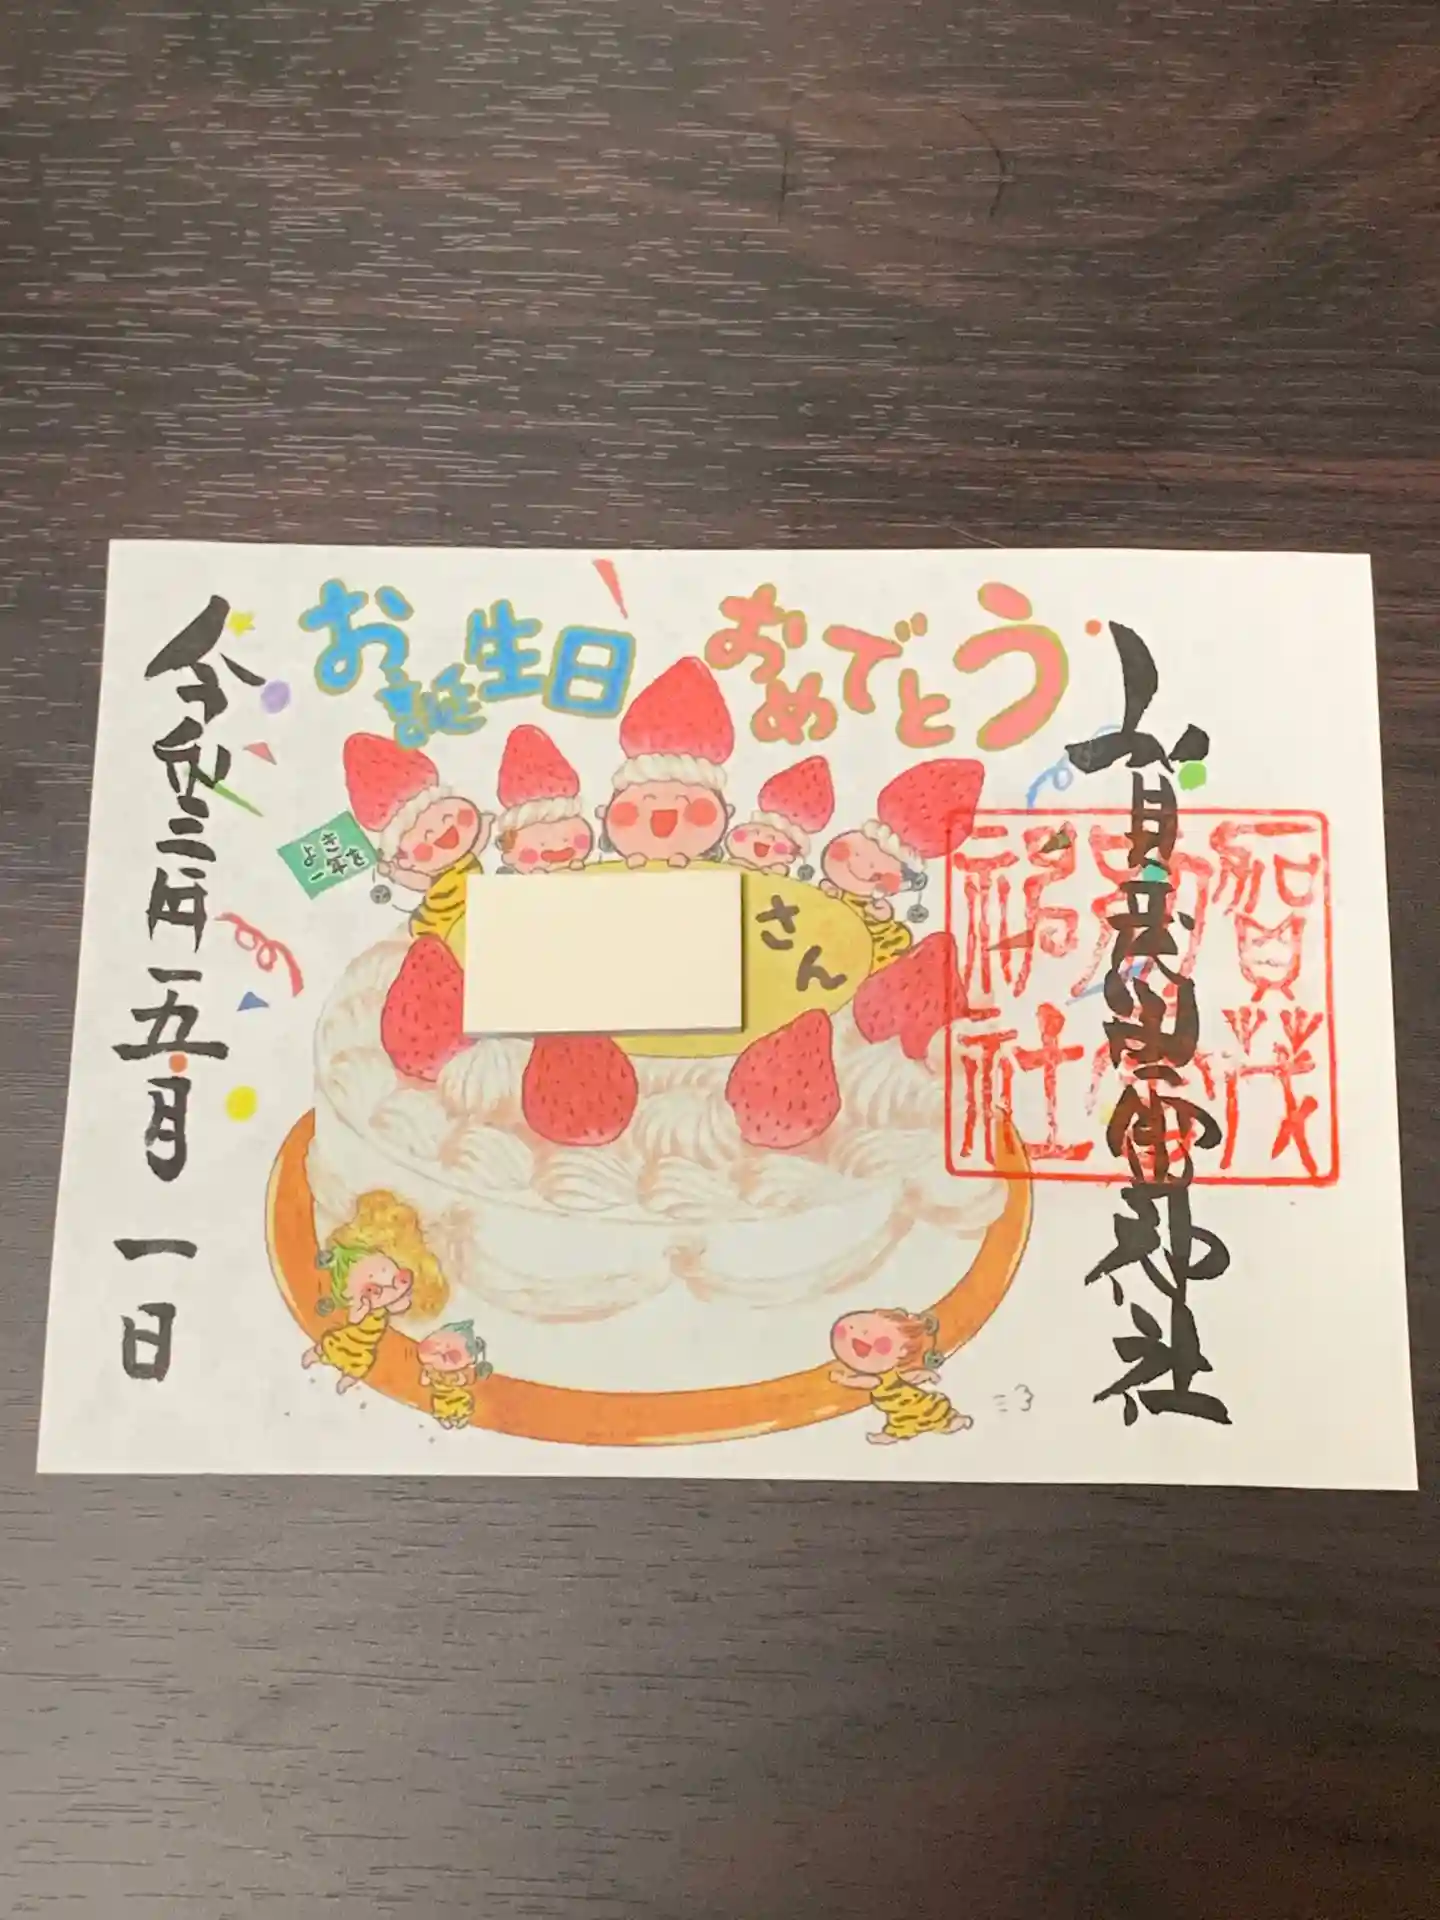 お誕生日 おめでとう
よき
一年を
さん
賀茂別雷神社
賀茂
神社
令和三年 五月 一日